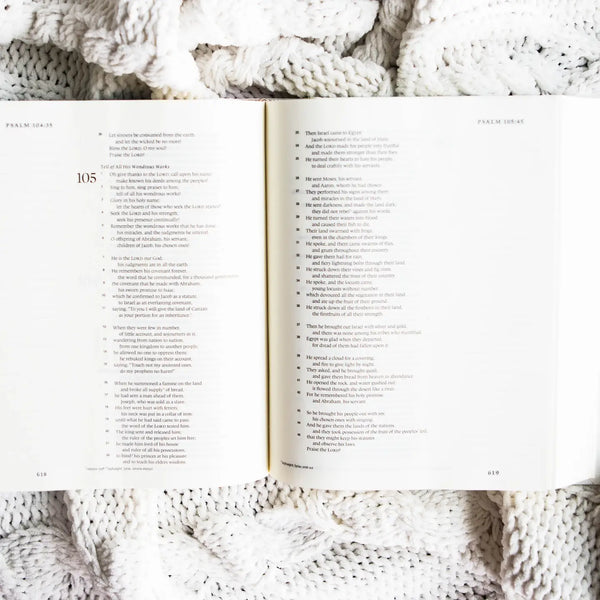 PSALM 104:35
35 Let sinners be consumed from the earth,
and let the wicked be no more!
Bless the LORD, O my soul!
Praise the LORD!
Tell of All His Wondrous Works
105 Oh give thanks to the LORD; call upon his name;
make known his deeds among the peoples!
2 Sing to him, sing praises to him;
tell of all his wondrous works!
3 Glory in his holy name;
let the hearts of those who seek the LORD rejoice!
4 Seek the LORD and his strength;
seek his presence continually!
5 Remember the wondrous works that he has done,
his miracles, and the judgments he uttered,
6 O offspring of Abraham, his servant,
children of Jacob, his chosen ones!
7 He is the LORD our God;
his judgments are in all the earth.
8 He remembers his covenant forever,
the word that he commanded, for a thousand generations,
9 the covenant that he made with Abraham,
his sworn promise to Isaac,
10 which he confirmed to Jacob as a statute,
to Israel as an everlasting covenant,
11 saying, "To you I will give the land of Canaan
as your portion for an inheritance."
12 When they were few in number,
of little account, and sojourners in it,
13 wandering from nation to nation,
from one kingdom to another people,
14 he allowed no one to oppress them;
he rebuked kings on their account,
15 saying, "Touch not my anointed ones,
do my prophets no harm!"
16 When he summoned a famine on the land
and broke all supply of bread,
17 he had sent a man ahead of them,
Joseph, who was sold as a slave.
18 His feet were hurt with fetters;
his neck was put in a collar of iron;
19 until what he had said came to pass,
the word of the LORD tested him.
20 The king sent and released him,
the ruler of the peoples set him free;
21 he made him lord of his house
and ruler of all his possessions,
22 to bind his princes at his pleasure
and to teach his elders wisdom.
618
PSALM 105:45
23 Then Israel came to Egypt;
Jacob sojourned in the land of Ham.
24 And the LORD made his people very fruitful
and made them stronger than their foes.
25 He turned their hearts to hate his people,
to deal craftily with his servants.
26 He sent Moses, his servant,
and Aaron, whom he had chosen.
27 They performed his signs among them
and miracles in the land of Ham.
28 He sent darkness, and made the land dark;
they did not rebel against his words.
29 He turned their waters into blood
and caused their fish to die.
30 Their land swarmed with frogs,
even in the chambers of their kings.
31 He spoke, and there came swarms of flies,
and gnats throughout their country.
32 He gave them hail for rain,
and fiery lightning bolts through their land.
33 He struck down their vines and fig trees,
and shattered the trees of their country.
34 He spoke, and the locusts came,
young locusts without number,
35 which devoured all the vegetation in their land
and ate up the fruit of their ground.
36 He struck down all the firstborn in their land,
the firstfruits of all their strength.
37 Then he brought out Israel with silver and gold,
and there was none among his tribes who stumbled.
38 Egypt was glad when they departed,
for dread of them had fallen upon it.
39 He spread a cloud for a covering,
and fire to give light by night.
40 They asked, and he brought quail,
and gave them bread from heaven in abundance.
41 He opened the rock, and water gushed out;
it flowed through the desert like a river.
42 For he remembered his holy promise,
and Abraham, his servant.
43 So he brought his people out with joy,
his chosen ones with singing.
44 And he gave them the lands of the nations,
and they took possession of the fruit of the peoples' toil,
45 that they might keep his statutes
and observe his laws.
Praise the LORD!
619